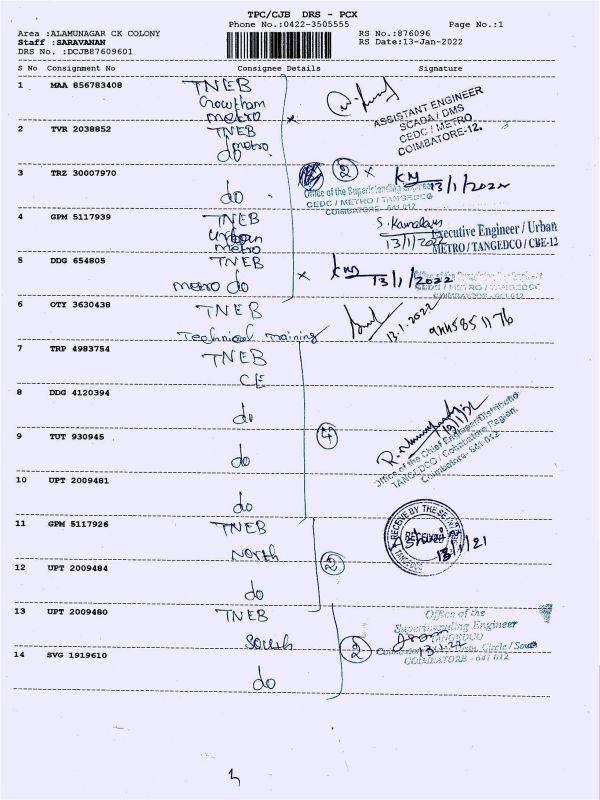 TPC/CJB DRS - PCX
Phone No.:0422-3505555 Page No.:1
Area :ALAMUNAGAR CK COLONY RS No.:876096
Staff :SARAVANAN RS Date:13-Jan-2022
DRS No. :DCJB87609601
S No Consignment No Consignee Details Signature
1 MAA 856783408 TNEB
Gowtham
metro
ASSISTANT ENGINEER
SCADA / DMS
CEDC / METRO
COIMBATORE-12.
2 TVR 2038852 TNEB
metro
do
3 TRZ 30007970 2 x 13/1/2022
do
Office of the Superintending Engineer
CEDC / METRO / TANGEDCO
COIMBATORE - 641 012
4 GPM 5117939 TNEB
Urban
metro
13/1/2022
Executive Engineer / Urban
METRO / TANGEDCO / CBE-12
5 DDG 654805 TNEB
metro do
x 13/1/2022
6 OTY 3630438 TNEB
Technical Training
13.1.2022
7 TRP 4983754 TNEB
CE
8 DDG 4120394
do
9 TUT 930945
do
4
Office of the Chief Engineer/Distribution
TANGEDCO / Coimbatore Region.
Coimbatore- 641 012
10 UPT 2009481
do
11 GPM 5117926 TNEB
North
RECEIVED
TANGEDCO
13/1/21
12 UPT 2009484
do
2
13 UPT 2009480 TNEB
South
2
Office of the
Superintending Engineer
TANGEDCO
Circle / South
COIMBATORE - 641 012
14 SVG 1919610
do